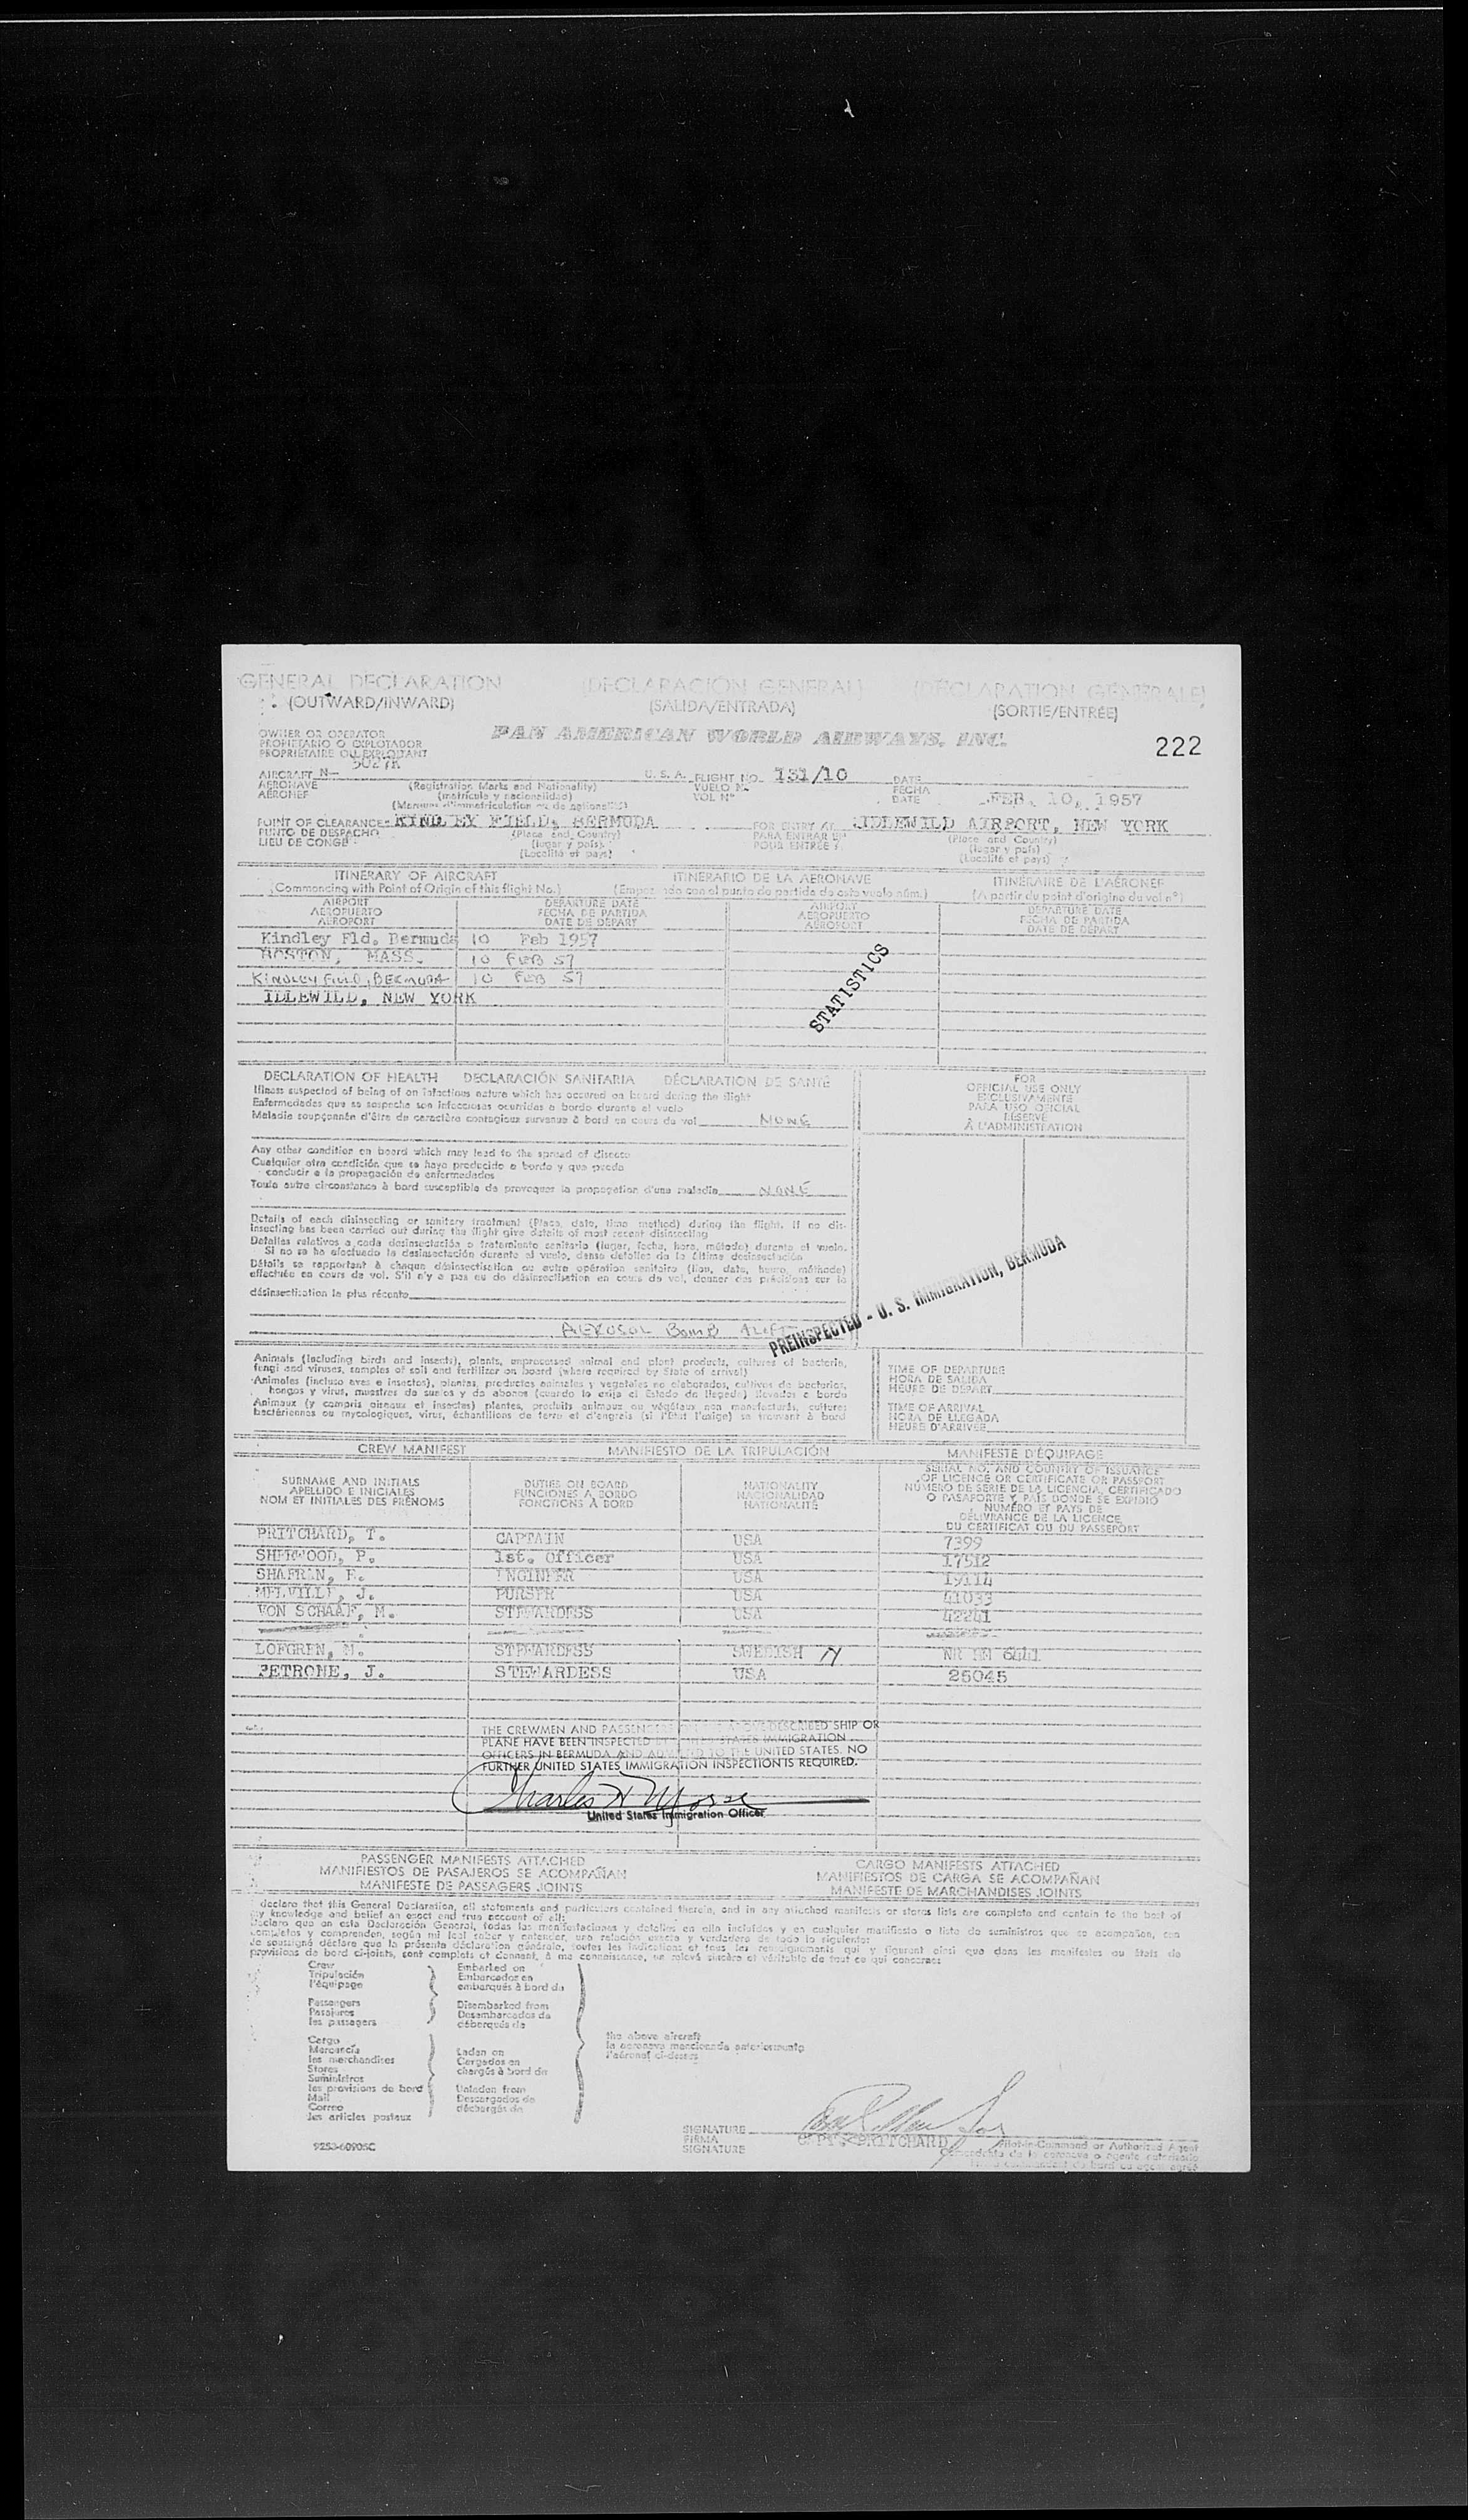 GENERAL DECLARATION (DECLARACIÓN GENERAL) (DÉCLARATION GÉNÉRALE)
(OUTWARD/INWARD) (SALIDA/ENTRADA) (SORTIE/ENTRÉE)
PAN AMERICAN WORLD AIRWAYS, INC.
222
OWNER OR OPERATOR
PROPIETARIO O EXPLOTADOR
PROPRIÉTAIRE OU EXPLOITANT
AIRCRAFT N- 5027K U. S. A. FLIGHT NO. 131/10 DATE
AERONAVE (Registration Marks and Nationality) VUELO N. FECHA
AÉRONEF (matrícula y nacionalidad) VOL Nº DATE FEB. 10, 1957
(Marques d'immatriculation et de nationalité)
POINT OF CLEARANCE KINDLEY FIELD, BERMUDA FOR ENTRY AT IDLEWILD AIRPORT, NEW YORK
PUNTO DE DESPACHO (Place and Country) PARA ENTRAR EN (Place and Country)
LIEU DE CONGÉ (lugar y país) POUR ENTRÉE À (lugar y país)
(Localité et pays) (Localité et pays)
ITINERARY OF AIRCRAFT ITINERARIO DE LA AERONAVE ITINÉRAIRE DE L'AÉRONEF
(Commencing with Point of Origin of this flight No.) (Empezando con el punto de partida de este vuelo núm.) (A partir du point d'origine du vol nº)
AIRPORT DEPARTURE DATE AIRPORT DEPARTURE DATE
AEROPUERTO FECHA DE PARTIDA AEROPUERTO FECHA DE PARTIDA
AÉROPORT DATE DE DÉPART AÉROPORT DATE DE DÉPART
Kindley Fld. Bermuda 10 Feb 1957
BOSTON, MASS. 10 FEB 57
KINDLEY FIELD, BERMUDA 10 FEB 57
IDLEWILD, NEW YORK
STATISTICS
DECLARATION OF HEALTH DECLARACIÓN SANITARIA DÉCLARATION DE SANTÉ
Illness suspected of being of an infectious nature which has occurred on board during the flight
Enfermedades que se sospecha son infecciosas ocurridas a bordo durante el vuelo
Maladie soupçonnée d'être de caractère contagieux survenue à bord en cours du vol NONE
FOR
OFFICIAL USE ONLY
EXCLUSIVAMENTE
PARA USO OFICIAL
RÉSERVÉ
À L'ADMINISTRATION
Any other condition on board which may lead to the spread of disease
Cualquier otra condición que se haya producido a bordo y que pueda
conducir a la propagación de enfermedades
Toute autre circonstance à bord susceptible de provoquer la propagation d'une maladie NONE
Details of each disinsecting or sanitary treatment (Place, date, time method) during the flight. If no dis-
insecting has been carried out during the flight give details of most recent disinsecting
Detalles relativos a cada desinsectación o tratamiento sanitario (lugar, fecha, hora, método) durante el vuelo.
Si no se ha efectuado la desinsectación durante el vuelo, dense detalles de la última desinsectación
Détails se rapportant à chaque désinsectisation ou autre opération sanitaire (lieu, date, heure, méthode)
effectuée en cours de vol. S'il n'y a pas eu de désinsectisation en cours de vol, donner des précisions sur la
désinsectisation la plus récente
AEROSOL BOMB
PREINSPECTED - U. S. IMMIGRATION, BERMUDA
Animals (including birds and insects), plants, unprocessed animal and plant products, cultures of bacteria,
fungi and viruses, samples of soil and fertilizer on board (where required by State of arrival)
Animales (incluso aves e insectos), plantas, productos animales y vegetales no elaborados, cultivos de bacterias,
hongos y virus, muestras de suelos y de abonos (cuando lo exija el Estado de llegada) llevados a bordo
Animaux (y compris oiseaux et insectes) plantes, produits animaux ou végétaux non manufacturés, cultures
bactériennes ou mycologiques, virus, échantillons de terre et d'engrais (si l'État l'exige) se trouvant à bord
TIME OF DEPARTURE
HORA DE SALIDA
HEURE DE DÉPART
TIME OF ARRIVAL
HORA DE LLEGADA
HEURE D'ARRIVÉE
CREW MANIFEST MANIFIESTO DE LA TRIPULACIÓN MANIFESTE D'ÉQUIPAGE
SURNAME AND INITIALS
APELLIDO E INICIALES
NOM ET INITIALES DES PRÉNOMS
DUTIES ON BOARD
FUNCIONES A BORDO
FONCTIONS À BORD
NATIONALITY
NACIONALIDAD
NATIONALITÉ
SERIAL NO. AND COUNTRY OF ISSUANCE
OF LICENCE OR CERTIFICATE OR PASSPORT
NÚMERO DE SERIE DE LA LICENCIA, CERTIFICADO
O PASAPORTE Y PAÍS DONDE SE EXPIDIÓ
NUMÉRO ET PAYS DE
DÉLIVRANCE DE LA LICENCE,
DU CERTIFICAT OU DU PASSEPORT
PRITCHARD, T. CAPTAIN USA 7399
SHERWOOD, P. 1st. Officer USA 17512
SHAFRAN, E. ENGINEER USA 19114
MELVILLE, J. PURSER USA 41033
VON SCHAAF, M. STEWARDESS USA 42241
LOFGREN, M. STEWARDESS SWEDISH NR 6441
PETRONE, J. STEWARDESS USA 25045
THE CREWMEN AND PASSENGERS ON THE ABOVE-DESCRIBED SHIP OR
PLANE HAVE BEEN INSPECTED BY UNITED STATES IMMIGRATION
OFFICERS IN BERMUDA AND ADMITTED TO THE UNITED STATES. NO
FURTHER UNITED STATES IMMIGRATION INSPECTION IS REQUIRED.
Charles H Morse
United States Immigration Officer
PASSENGER MANIFESTS ATTACHED CARGO MANIFESTS ATTACHED
MANIFIESTOS DE PASAJEROS SE ACOMPAÑAN MANIFIESTOS DE CARGA SE ACOMPAÑAN
MANIFESTE DE PASSAGERS JOINTS MANIFESTE DE MARCHANDISES JOINTS
declare that this General Declaration, all statements and particulars contained therein, and in any attached manifests or stores lists are complete and contain to the best of
my knowledge and belief an exact and true account of all:
Declaro que en esta Declaración General, todas las manifestaciones y detalles en ella incluidos y en cualquier manifiesto o lista de suministros que se acompañen, son
completos y comprenden, según mi leal saber y entender, una relación exacta y verdadera de todo lo siguiente:
Je soussigné déclare que la présente déclaration générale, toutes les indications et tous les renseignements qui y figurent ainsi que dans les manifestes ou états de
provisions de bord ci-joints, sont complets et donnent, à ma connaissance, un relevé sincère et véritable de tout ce qui concerne:
Crew
Tripulación
l'équipage
Passengers
Pasajeros
les passagers
Cargo
Mercancía
les marchandises
Stores
Suministros
les provisions de bord
Mail
Correo
les articles postaux
Embarked on
Embarcados en
embarqués à bord du
Disembarked from
Desembarcados de
débarqués de
Laden on
Cargados en
chargés à bord de
Unladen from
Descargados de
déchargés de
the above aircraft
la aeronave mencionada anteriormente
l'aéronef ci-dessus
SIGNATURE
FIRMA CAPT. PRITCHARD Pilot-in-Command or Authorized Agent
SIGNATURE Comandante de la aeronave o agente autorizado
9253-60905C